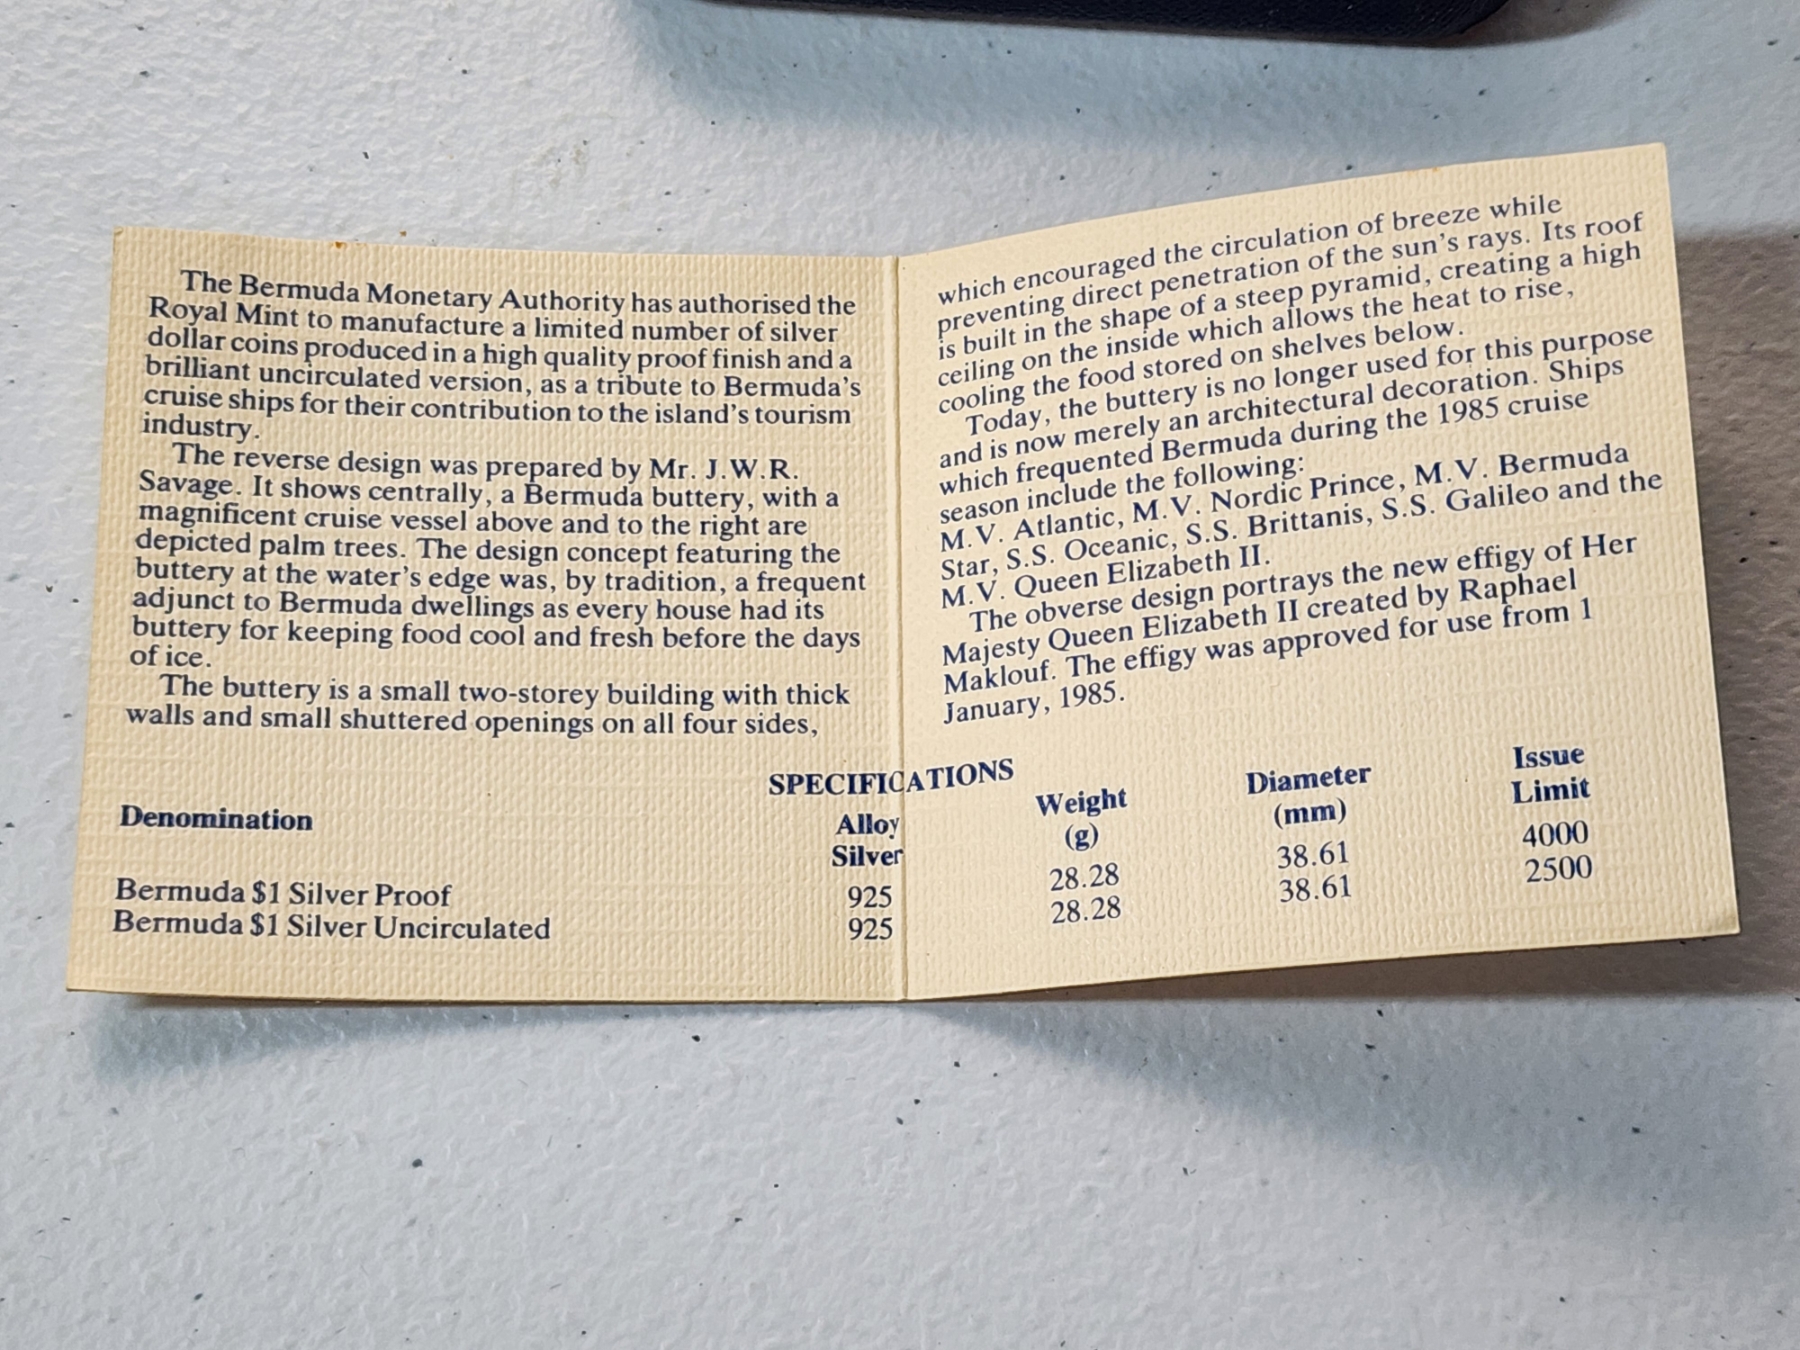 The Bermuda Monetary Authority has authorised the
Royal Mint to manufacture a limited number of silver
dollar coins produced in a high quality proof finish and a
brilliant uncirculated version, as a tribute to Bermuda's
cruise ships for their contribution to the island's tourism
industry.
The reverse design was prepared by Mr. J.W.R.
Savage. It shows centrally, a Bermuda buttery, with a
magnificent cruise vessel above and to the right are
depicted palm trees. The design concept featuring the
buttery at the water's edge was, by tradition, a frequent
adjunct to Bermuda dwellings as every house had its
buttery for keeping food cool and fresh before the days
of ice.
The buttery is a small two-storey building with thick
walls and small shuttered openings on all four sides,
which encouraged the circulation of breeze while
preventing direct penetration of the sun's rays. Its roof
is built in the shape of a steep pyramid, creating a high
ceiling on the inside which allows the heat to rise,
cooling the food stored on shelves below.
Today, the buttery is no longer used for this purpose
and is now merely an architectural decoration. Ships
which frequented Bermuda during the 1985 cruise
season include the following:
M.V. Atlantic, M.V. Nordic Prince, M.V. Bermuda
Star, S.S. Oceanic, S.S. Brittanis, S.S. Galileo and the
M.V. Queen Elizabeth II.
The obverse design portrays the new effigy of Her
Majesty Queen Elizabeth II created by Raphael
Maklouf. The effigy was approved for use from 1
January, 1985.
SPECIFICATIONS
Denomination Alloy Weight Diameter Issue
Silver (g) (mm) Limit
Bermuda $1 Silver Proof 925 28.28 38.61 4000
Bermuda $1 Silver Uncirculated 925 28.28 38.61 2500